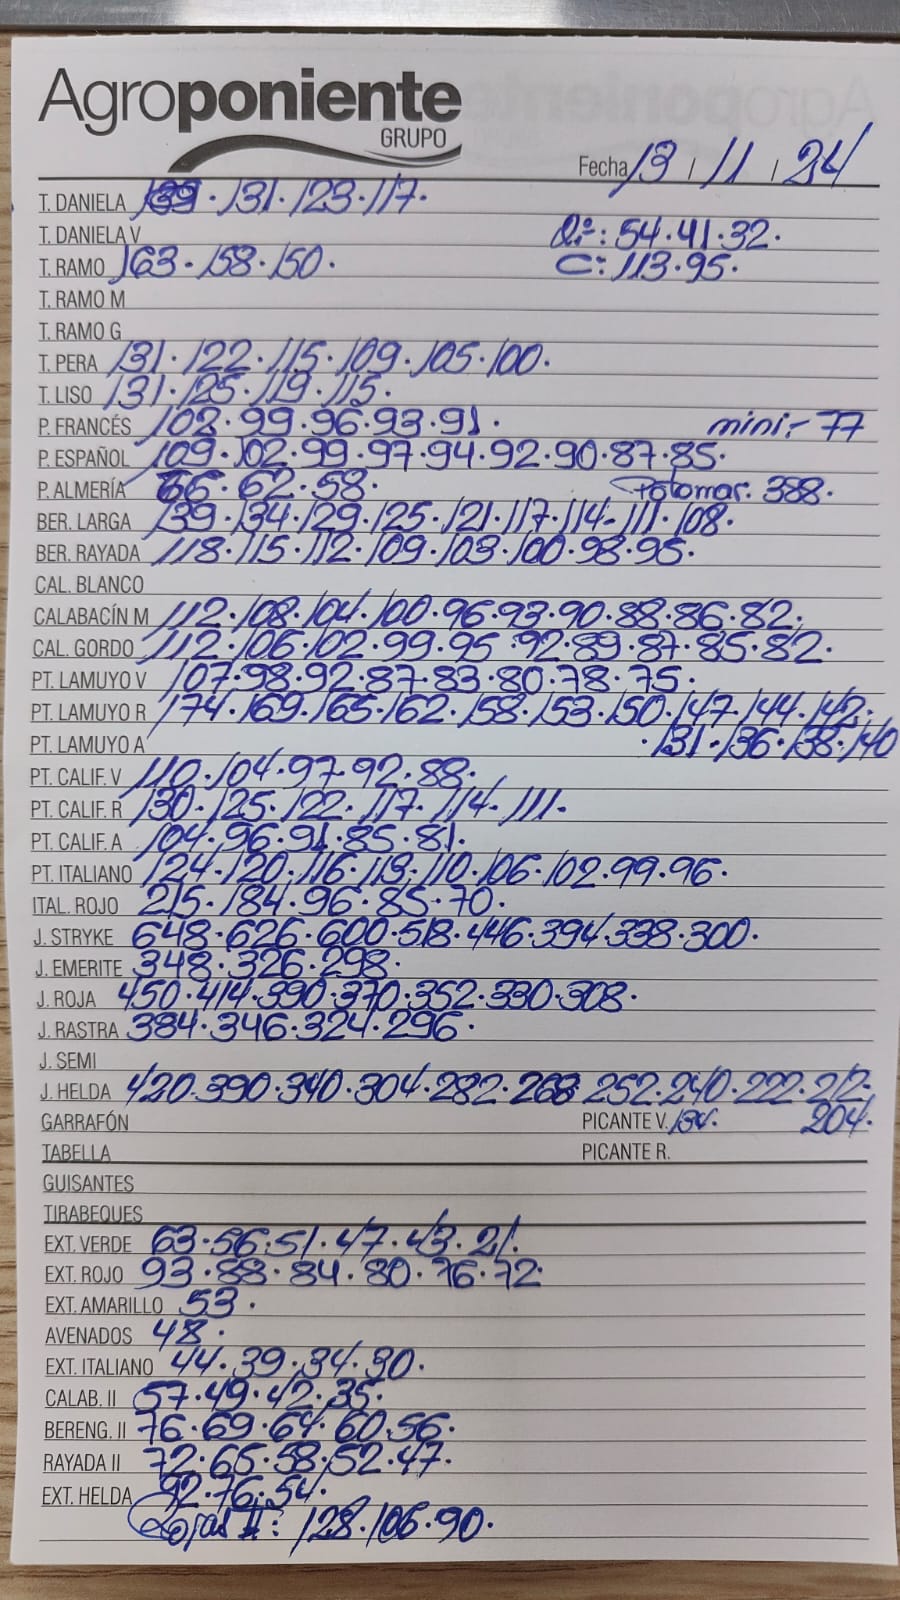 Agroponiente
GRUPO
Fecha 13 / 11 / 24
T. DANIELA 139 · 131 · 123 · 117 ·
T. DANIELA V 54 · 41 · 32 ·
T. RAMO 163 · 158 · 150 · C: 113 · 95 ·
T. RAMO M
T. RAMO G
T. PERA 131 · 122 · 115 · 109 · 105 · 100 ·
T. LISO 131 · 125 · 119 · 115 ·
P. FRANCÉS 102 · 99 · 96 · 93 · 91 · mini - 77
P. ESPAÑOL 109 · 102 · 99 · 97 · 94 · 92 · 90 · 87 · 85 ·
P. ALMERÍA 66 · 62 · 58 · Polomar. 388 ·
BER. LARGA 139 · 134 · 129 · 125 · 121 · 117 · 114 - 111 · 108 ·
BER. RAYADA 118 · 115 · 112 · 109 · 103 · 100 · 98 · 95 ·
CAL. BLANCO
CALABACÍN M 112 · 108 · 104 · 100 · 96 · 93 · 90 · 88 · 86 · 82 ·
CAL. GORDO 112 · 106 · 102 · 99 · 95 · 92 · 89 · 87 · 85 · 82 ·
PT. LAMUYO V 107 · 98 · 92 · 87 · 83 · 80 · 78 · 75 ·
PT. LAMUYO R 174 · 169 · 165 · 162 · 158 · 153 · 150 · 147 · 144 · 142 ·
PT. LAMUYO A · 131 · 136 · 138 · 140
PT. CALIF. V 110 · 104 · 97 · 92 · 88 ·
PT. CALIF. R 130 · 125 · 122 · 117 · 114 · 111 ·
PT. CALIF. A 104 · 96 · 91 · 85 · 81 ·
PT. ITALIANO 124 · 120 · 116 · 113 · 110 · 106 · 102 · 99 · 96 ·
ITAL. ROJO 215 · 184 · 96 · 85 · 70 ·
J. STRYKE 648 · 626 · 600 · 518 · 446 · 394 · 338 · 300 ·
J. EMERITE 348 · 326 · 298 ·
J. ROJA 450 · 414 · 390 · 370 · 352 · 330 · 308 ·
J. RASTRA 384 · 346 · 324 · 296 ·
J. SEMI
J. HELDA 420 · 390 · 340 · 304 · 282 · 268 · 252 · 240 · 222 · 212 ·
GARRAFÓN PICANTE V. 134 · 204 ·
TABELLA PICANTE R.
GUISANTES
TIRABEQUES
EXT. VERDE 63 · 56 · 51 · 47 · 43 · 21 ·
EXT. ROJO 93 · 88 · 84 · 80 · 76 · 72
EXT. AMARILLO 53 ·
AVENADOS 48 ·
EXT. ITALIANO 44 · 39 · 34 · 30 ·
CALAB. II 57 · 49 · 42 · 35 ·
BERENG. II 76 · 69 · 64 · 60 · 56 ·
RAYADA II 72 · 65 · 58 · 52 · 47 ·
EXT. HELDA 92 · 76 · 54 ·
Rojas II: 128 · 106 · 90 ·